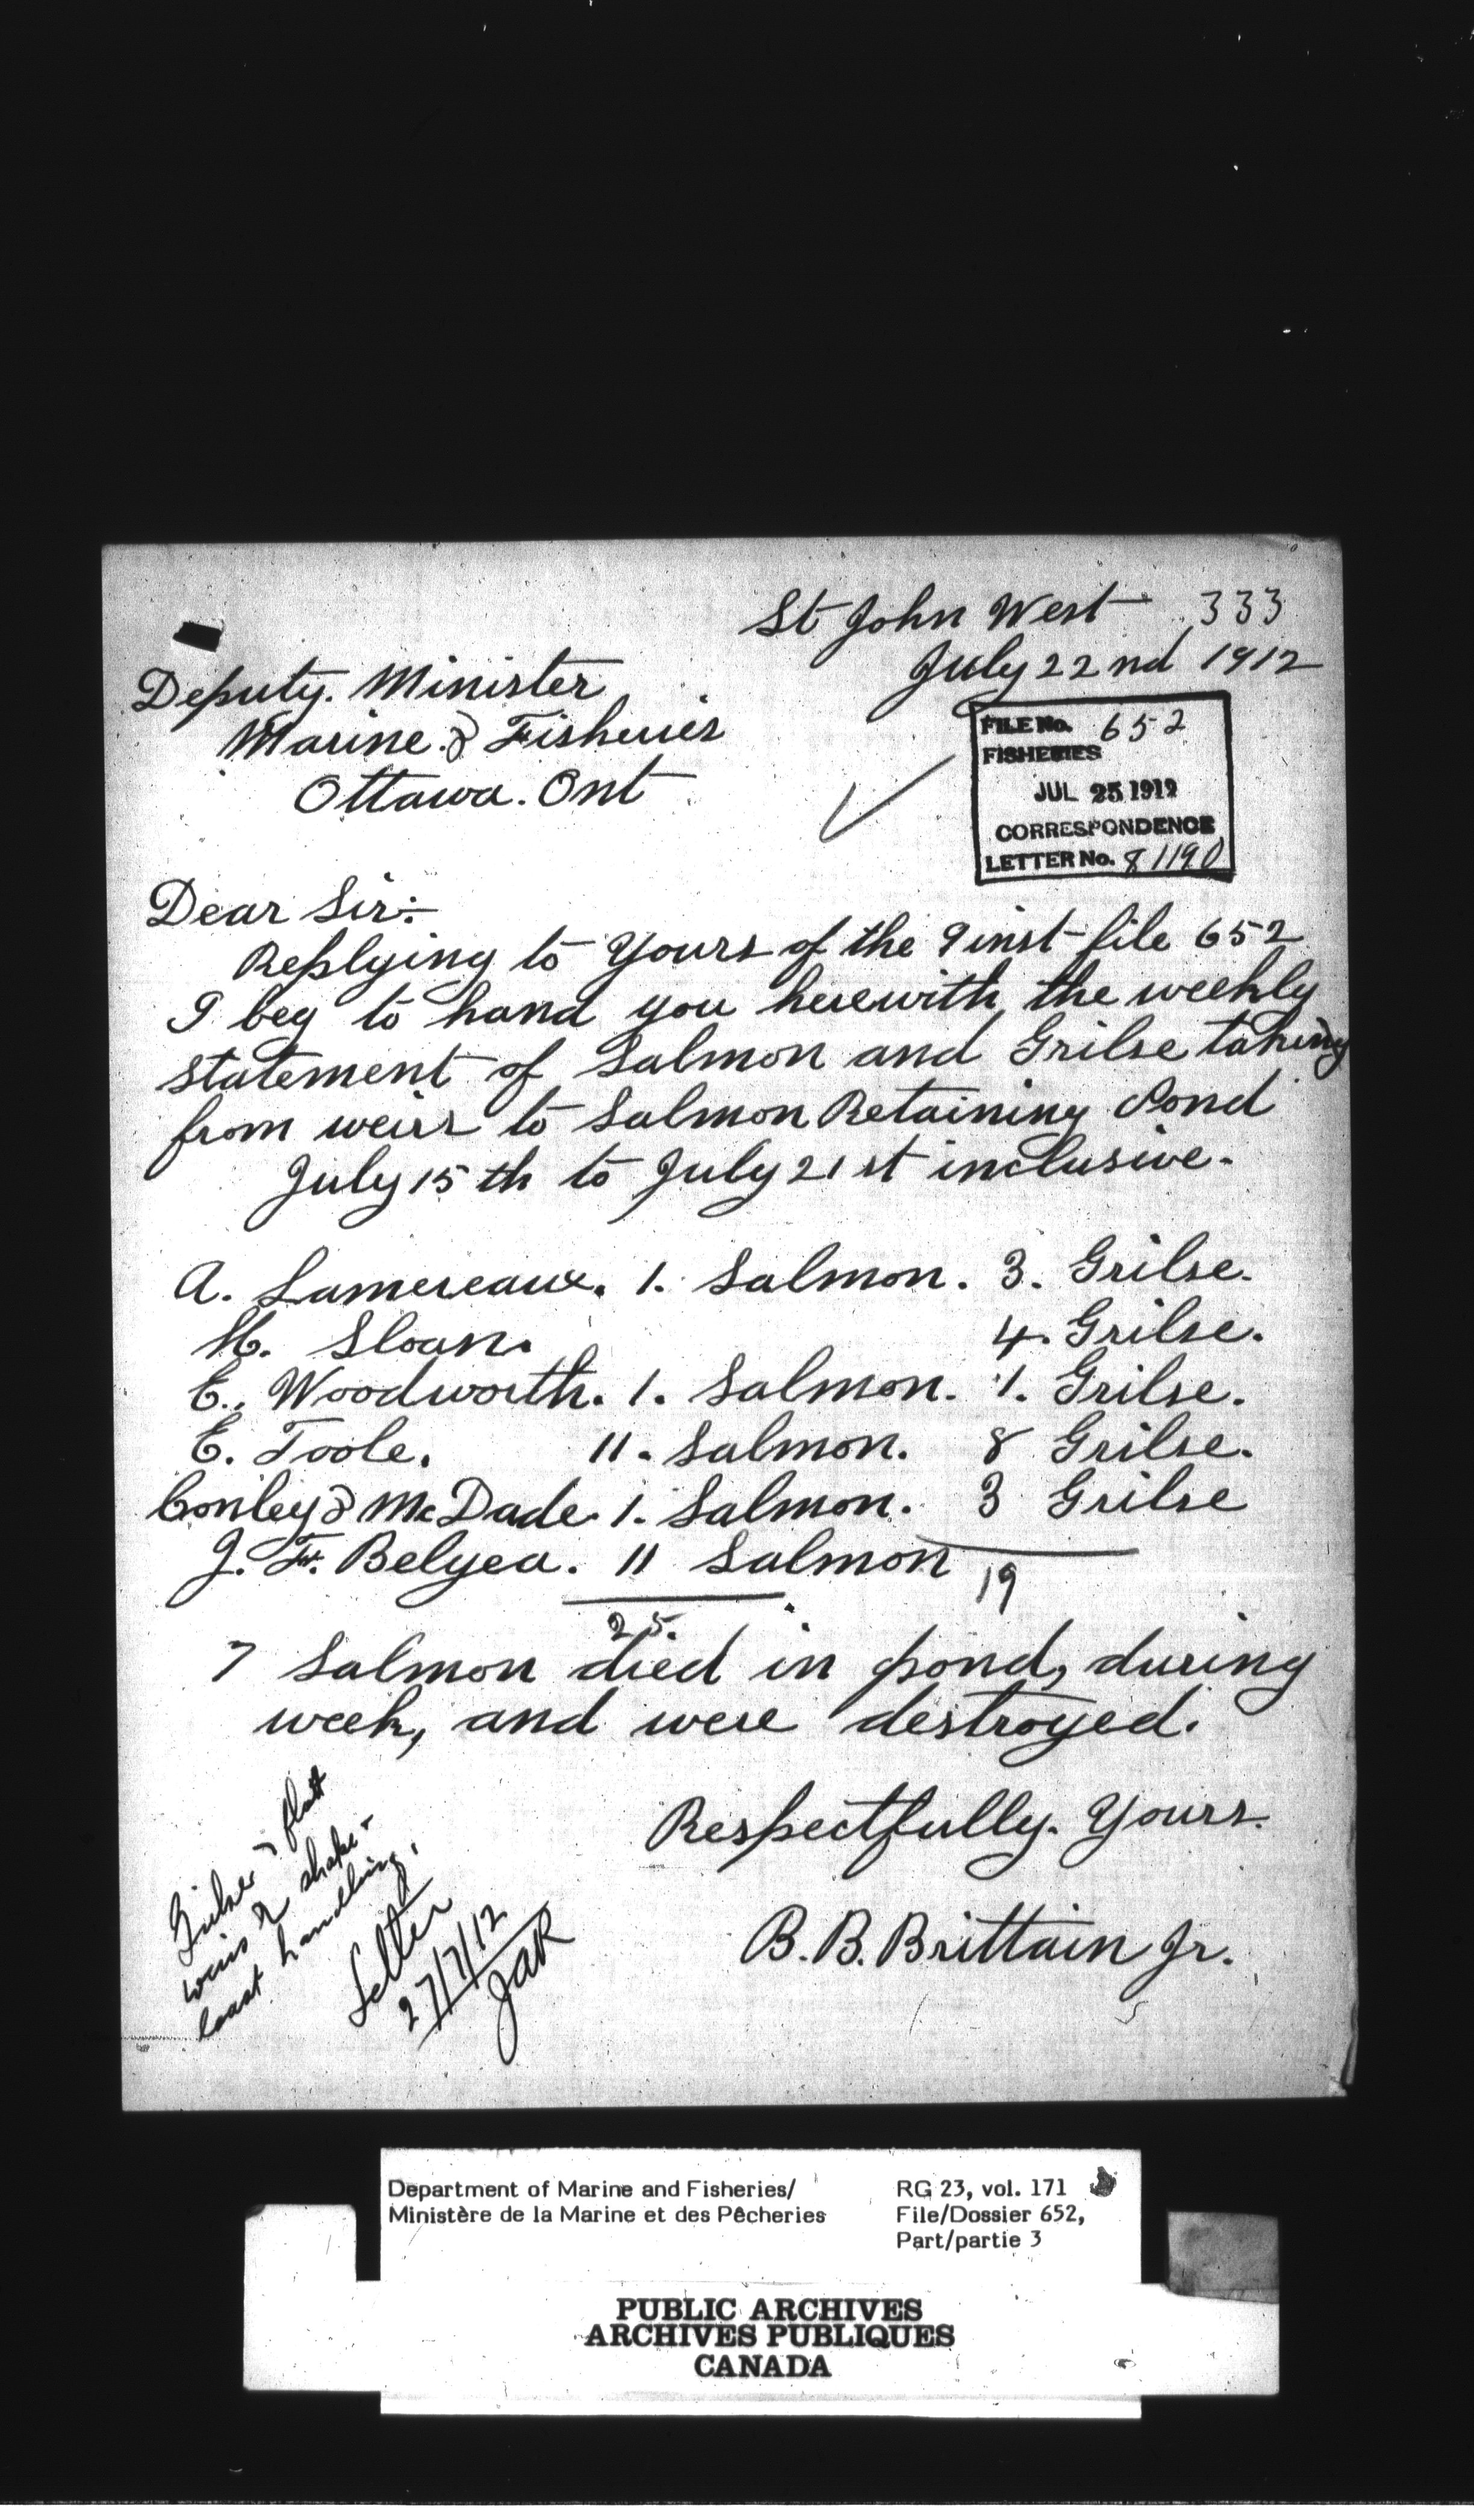 St John West 333
July 22nd 1912
Deputy. Minister
Marine. & Fisheries
Ottawa. Ont
FILE No. 652
FISHERIES
JUL 25 1912
CORRESPONDENCE
LETTER No. 81190
Dear Sir:-
Replying to Yours of the 9 inst file 652
I beg to hand you herewith the weekly
statement of Salmon and Grilse taking
from weirs to Salmon Retaining Pond
July 15th to July 21st inclusive.
A. Lamereaux. 1. Salmon. 3. Grilse.
M. Sloan. 4. Grilse.
E. Woodworth. 1. Salmon. 1. Grilse.
E. Toole. 11. Salmon. 8 Grilse.
Conley & McDade. 1. Salmon. 3 Grilse
J. F. Belyea. 11 Salmon
19
25.
7 Salmon died in pond, during
week, and were destroyed.
Respectfully. Yours.
B. B. Brittain Jr.
weirs
least handling.
Letter
27/7/12
JAR
Department of Marine and Fisheries/
Ministère de la Marine et des Pêcheries
RG 23, vol. 171
File/Dossier 652,
Part/partie 3
PUBLIC ARCHIVES
ARCHIVES PUBLIQUES
CANADA